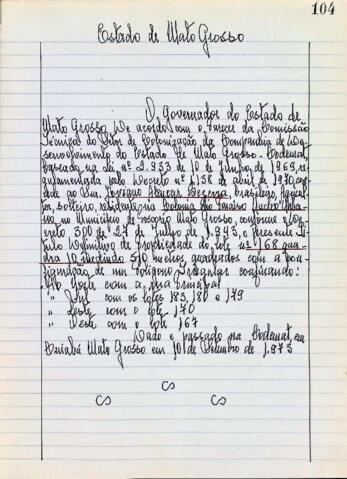 104
Estado de Mato Grosso
O Governador do Estado de
Mato Grosso De acordo com o Parecer da Comissão
Técnica do Setor de Colonização da Companhia de De
senvolvimento do Estado de Mato Grosso - Codemat,
baseada na lei nº 2.933 de 10 de Junho de 1969, re
gulamentada pelo Decreto nº 1.138 de abril de 1970, con
cede ao Snr. Alencar Bezerra, brasileiro,
solteiro, residente na Colonia
no Municipio de Mato Grosso, conforme o De
creto 300 de 27 de Junho de 1.943, o presente Tí
tulo Definitivo de propriedade do lote nº 168 qua
dra 10 medindo 510 metros quadrados com a con
figuração de um poligono irregular confinando:
Ao Norte com a rua
" Sul com os lotes 185, 180 e 179
" Leste com o lote 170
" Oeste com o lote 167
Dado e passado na Codemat, em
Cuiabá Mato Grosso em 10 de Setembro de 1.973